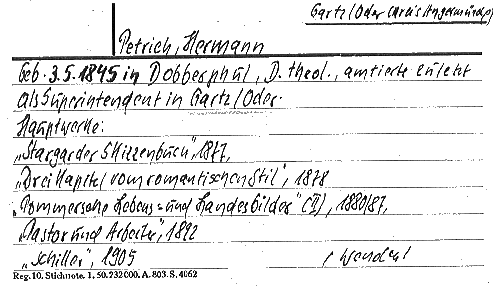 Gartz/Oder (Kreis Angermünde)
Petrich, Hermann
Geb. 3.5.1845 in Dobberphul, D. theol., amtierte zuletzt
als Superintendent in Gartz/Oder.
Hauptwerke:
„Stargarder Skizzenbuch", 1877,
„Drei Kapitel vom romantischen Stil", 1878
„Pommersche Lebens- und Landesbilder" (II), 1880/87,
„Pastor und Arbeiter", 1892
„Schiller", 1905
(wenden!
Reg. 10. Stichnote. 1. 50. 232000. A. 803. S. 4062